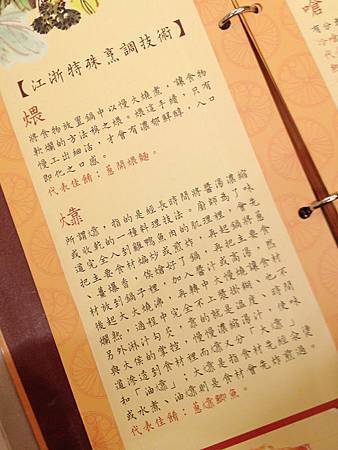 【江浙特殊烹調技術】
煨
將食物放置鍋中以慢火燒煮,讓食物
軟爛的方法稱之煨。煨這手續,只有
慢工出細活,才會有濃郁鮮醇,入口
即化之口感。
代表佳餚:蔥開煨麵。
㸆
所謂㸆,指的是經長時間將醬湯濃縮
或收乾的一種料理技法。廚師為了味
道完全入到雞鴨魚肉的肌理裡,會先
把主要食材煸炒或煎炸,再起鍋將蔥
、薑爆香,俟熗好了鍋,再把主要食
材放到鍋子裡,加入醬汁或高湯,然
後起大火燒沸,再轉中火慢燒讓食材
爛熟,過程中完全不上漿掛糊,也不
另外淋汁勾芡,靠的就是溫度、時間
與火侯的掌控,慢慢濃縮湯汁,使味
道滲透到食材裡而㸆又分「大㸆」
和「油㸆」;大㸆是指食材先經汆燙
或水煮、油㸆則是食材會先炸煎過。
代表佳餚:蔥㸆鯽魚。
嗆